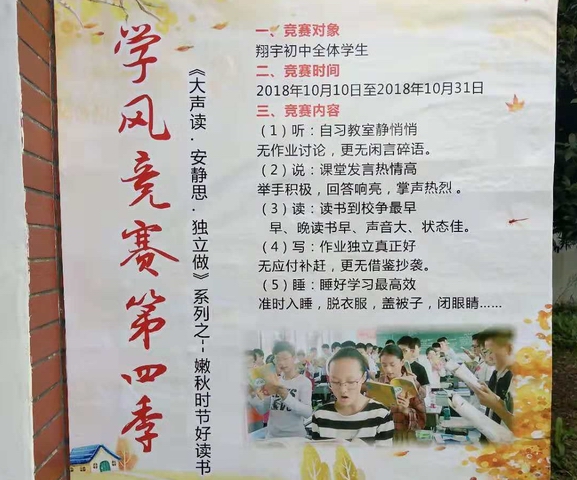 学风竞赛第四季
《大声读．安静思．独立做》系列之--嫩秋时节好读书
一、竞赛对象
翔宇初中全体学生
二、竞赛时间
2018年10月10日至2018年10月31日
三、竞赛内容
（1）听：自习教室静悄悄
无作业讨论，更无闲言碎语。
（2）说：课堂发言热情高
举手积极，回答响亮，掌声热烈 。
（3）读：读书到校争最早
早、晚读书早、声音大、状态佳。
（4）写：作业独立真正好
无应付补赶，更无借鉴抄袭。
（5）睡：睡好学习最高效
准时入睡，脱衣服，盖被子，闭眼睛......